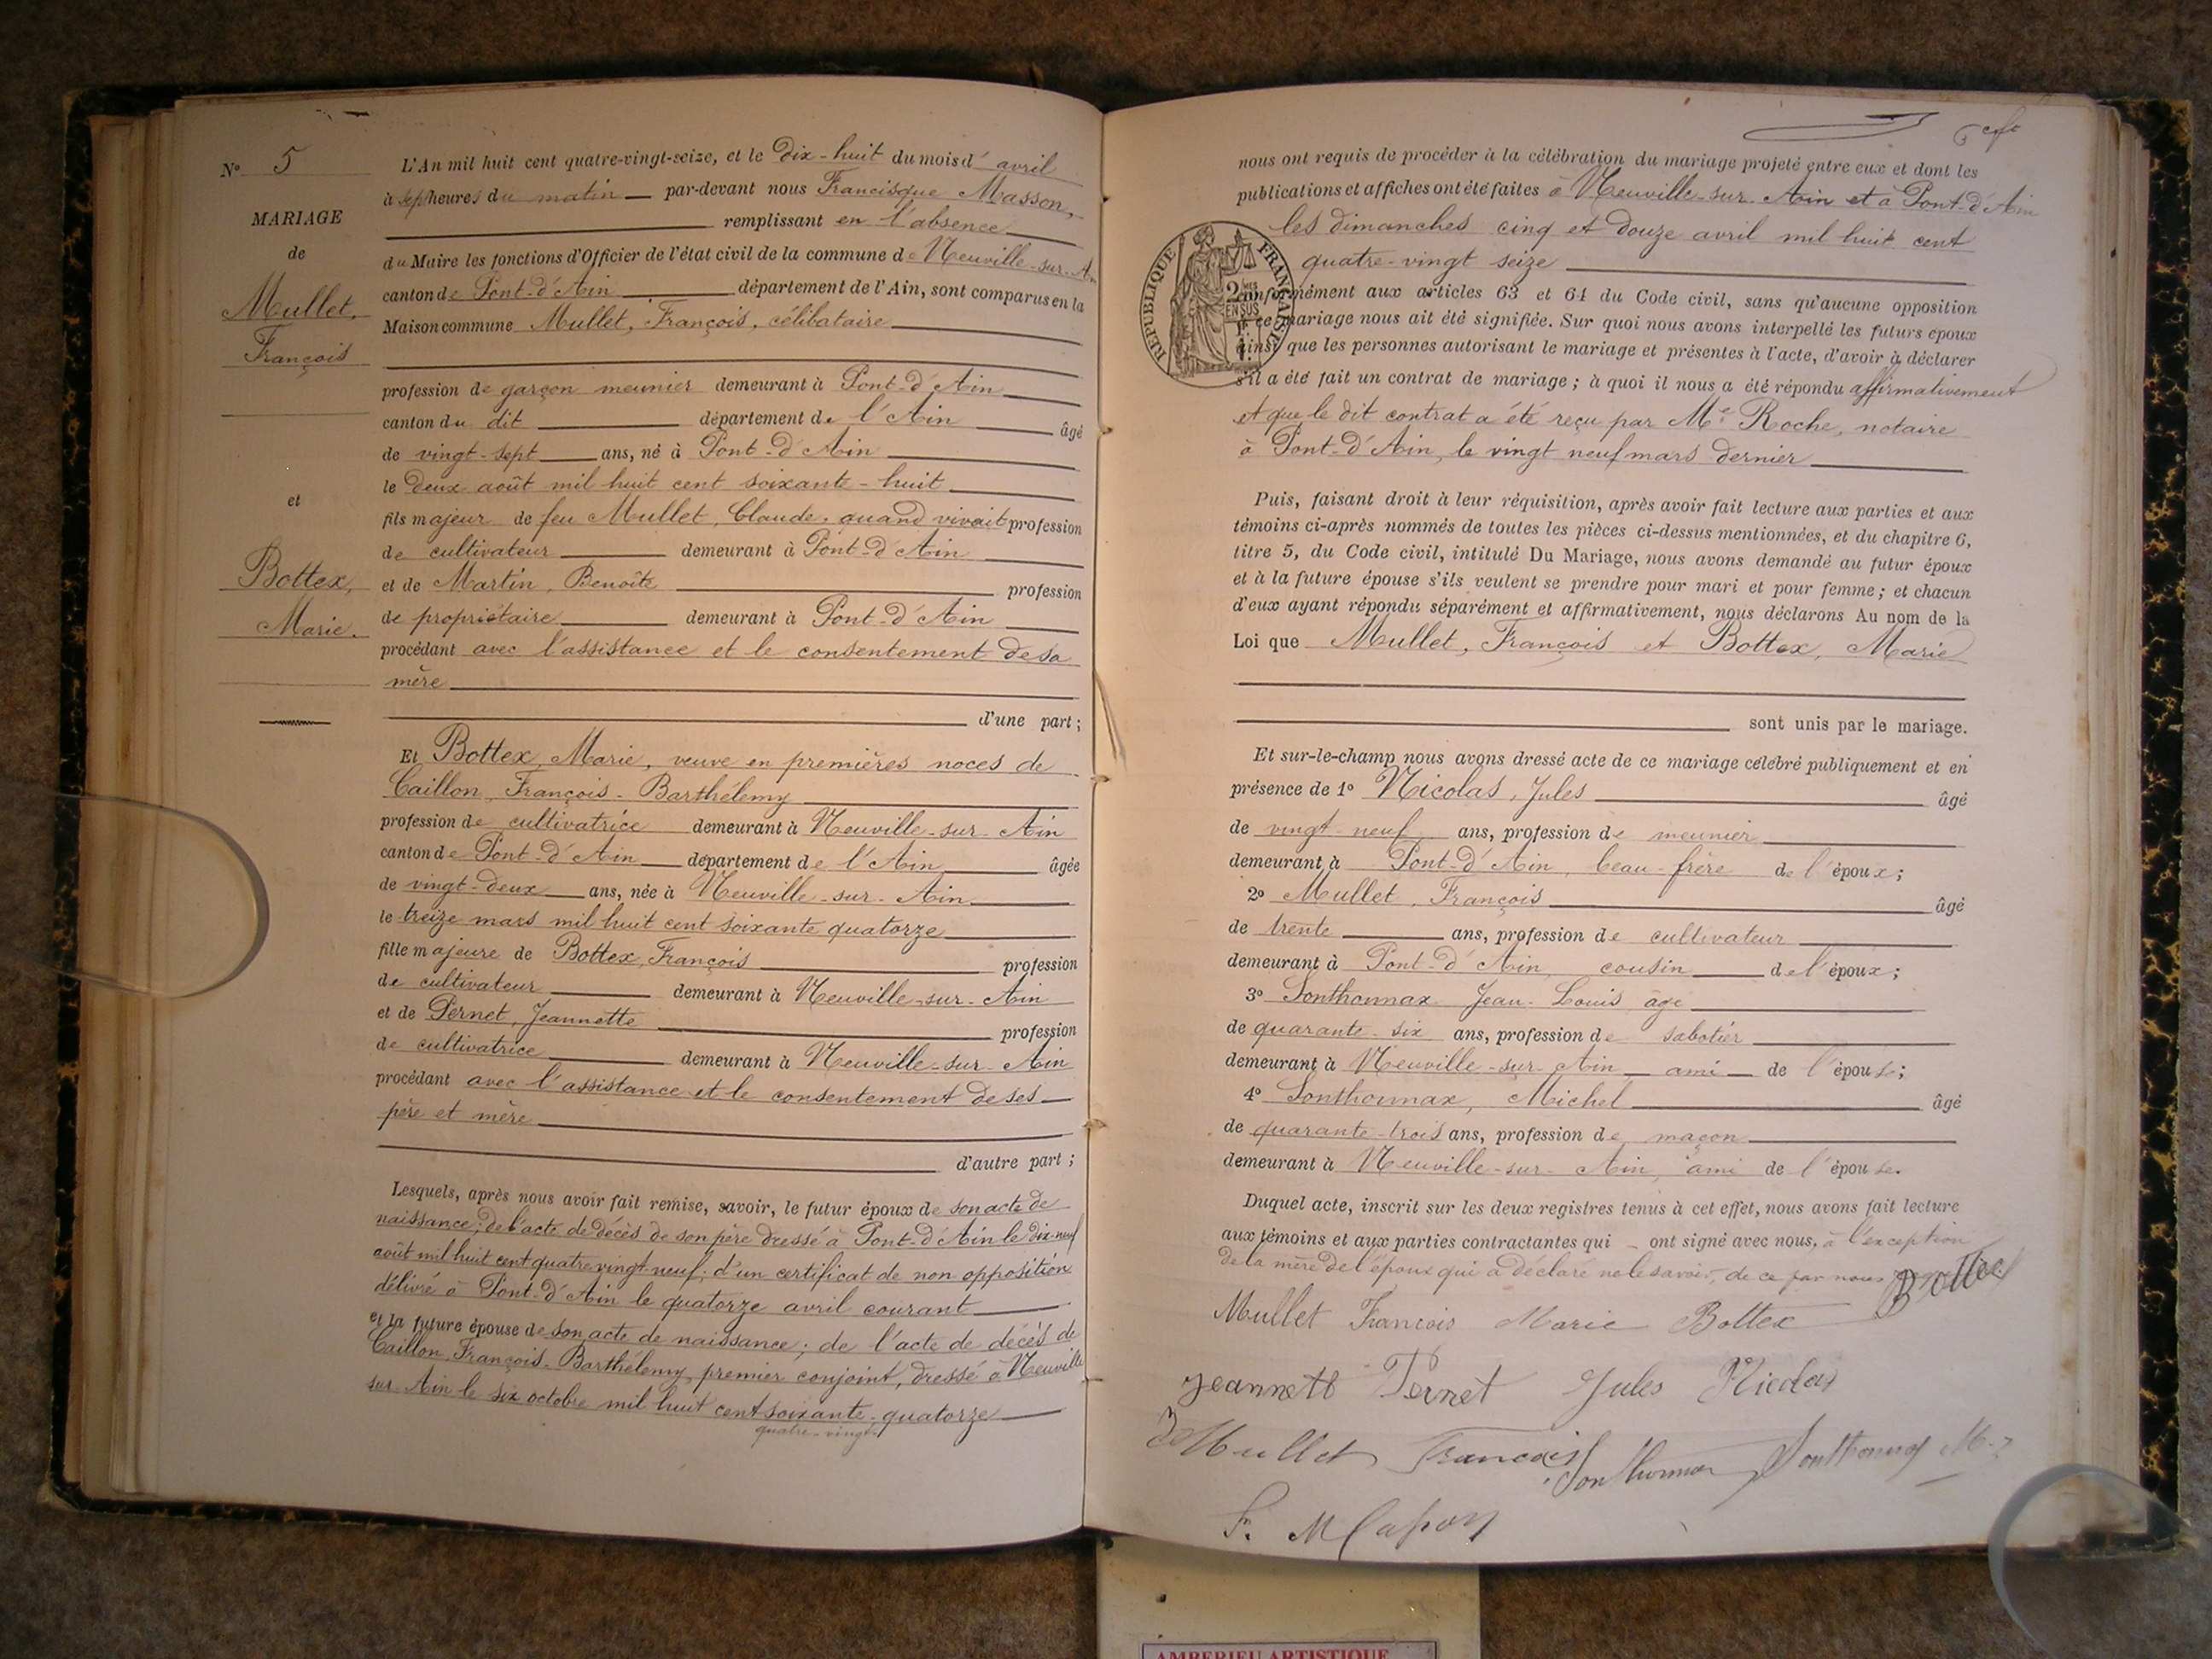 Nº 5
MARIAGE
de
Mullet,
François
et
Bottex,
Marie.
L'An mil huit cent quatre-vingt-seize, et le dix-huit du mois d'avril
à sept heures du matin par-devant nous Francisque Masson,
remplissant en l'absence
du Maire les fonctions d'Officier de l'état civil de la commune de Neuville-sur-Ain
canton de Pont-d'Ain département de l'Ain, sont comparus en la
Maison commune Mullet, François, célibataire
profession de garçon meunier demeurant à Pont-d'Ain
canton du dit département de l'Ain âgé
de vingt-sept ans, né à Pont-d'Ain
le deux août mil huit cent soixante-huit
fils majeur de feu Mullet, Claude, quand vivait profession
de cultivateur demeurant à Pont-d'Ain
et de Martin, Benoîte profession
de propriétaire demeurant à Pont-d'Ain
procédant avec l'assistance et le consentement de sa
mère
d'une part;
Et Bottex, Marie, veuve en premières noces de
Caillon, François-Barthélemy
profession de cultivatrice demeurant à Neuville-sur-Ain
canton de Pont-d'Ain département de l'Ain âgée
de vingt-deux ans, née à Neuville-sur-Ain
le treize mars mil huit cent soixante quatorze
fille majeure de Bottex, François profession
de cultivateur demeurant à Neuville-sur-Ain
et de Pernet, Jeannette profession
de cultivatrice demeurant à Neuville-sur-Ain
procédant avec l'assistance et le consentement de ses
père et mère
d'autre part;
Lesquels, après nous avoir fait remise, savoir, le futur époux de son acte de
naissance; de l'acte de décès de son père dressé à Pont-d'Ain le dix-neuf
août mil huit cent quatre vingt-neuf; d'un certificat de non opposition
délivré à Pont-d'Ain le quatorze avril courant
et la future épouse de son acte de naissance; de l'acte de décès de
Caillon, François-Barthélemy premier conjoint, dressé à Neuville
sur Ain le six octobre mil huit cent soixante-quatorze
quatre-vingt
nous ont requis de procéder à la célébration du mariage projeté entre eux et dont les
publications et affiches ont été faites à Neuville-sur-Ain et à Pont-d'Ain
les dimanches cinq et douze avril mil huit cent
quatre-vingt seize
RÉPUBLIQUE FRANÇAISE
2 MES EN SUS
conformément aux articles 63 et 64 du Code civil, sans qu'aucune opposition
à ce mariage nous ait été signifiée. Sur quoi nous avons interpellé les futurs époux
ainsi que les personnes autorisant le mariage et présentes à l'acte, d'avoir à déclarer
s'il a été fait un contrat de mariage; à quoi il nous a été répondu affirmativement
et que le dit contrat a été reçu par Me Roche, notaire
à Pont-d'Ain, le vingt neuf mars dernier
Puis, faisant droit à leur réquisition, après avoir fait lecture aux parties et aux
témoins ci-après nommés de toutes les pièces ci-dessus mentionnées, et du chapitre 6,
titre 5, du Code civil, intitulé Du Mariage, nous avons demandé au futur époux
et à la future épouse s'ils veulent se prendre pour mari et pour femme; et chacun
d'eux ayant répondu séparément et affirmativement, nous déclarons Au nom de la
Loi que Mullet, François et Bottex, Marie
sont unis par le mariage.
Et sur-le-champ nous avons dressé acte de ce mariage célébré publiquement et en
présence de 1º Nicolas, Jules âgé
de vingt-neuf ans, profession de meunier
demeurant à Pont-d'Ain, beau-frère de l'époux;
2º Mullet, François âgé
de trente ans, profession de cultivateur
demeurant à Pont-d'Ain cousin de l'époux;
3º Sonthonnax Jean-Louis âgé
de quarante-six ans, profession de sabotier
demeurant à Neuville-sur-Ain ami de l'épouse;
4º Sonthonnax, Michel âgé
de quarante-trois ans, profession de maçon
demeurant à Neuville-sur-Ain, ami de l'épouse.
Duquel acte, inscrit sur les deux registres tenus à cet effet, nous avons fait lecture
aux témoins et aux parties contractantes qui ont signé avec nous, à l'exception
de la mère de l'époux qui a déclaré ne le savoir, de ce par nous
Bottex
Mullet François Marie Bottex
Jeannette Pernet Jules Nicolas
Mullet François Sonthonnax Sonthonnax M.
F. Masson
AMBERIEU ARTISTIQUE